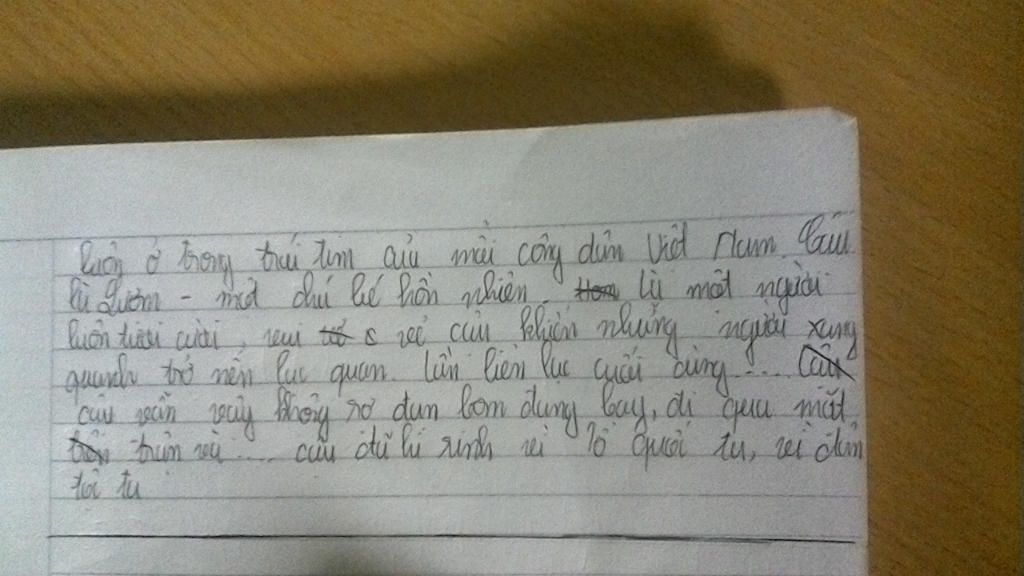 luôn ở trong trái tim của mỗi công dân Việt Nam. Cậu
là Lượm - một chú bé hồn nhiên. là một người
luôn tươi cười, vui vẻ cậu khiến những người xung
quanh trở nên lạc quan. Lần liên lạc cuối cùng....
cậu vẫn vậy không sợ đạn bom đang bay, đi qua mặt
trận và.... cậu đã hi sinh vì Tổ quốc ta, vì dân
tộc ta